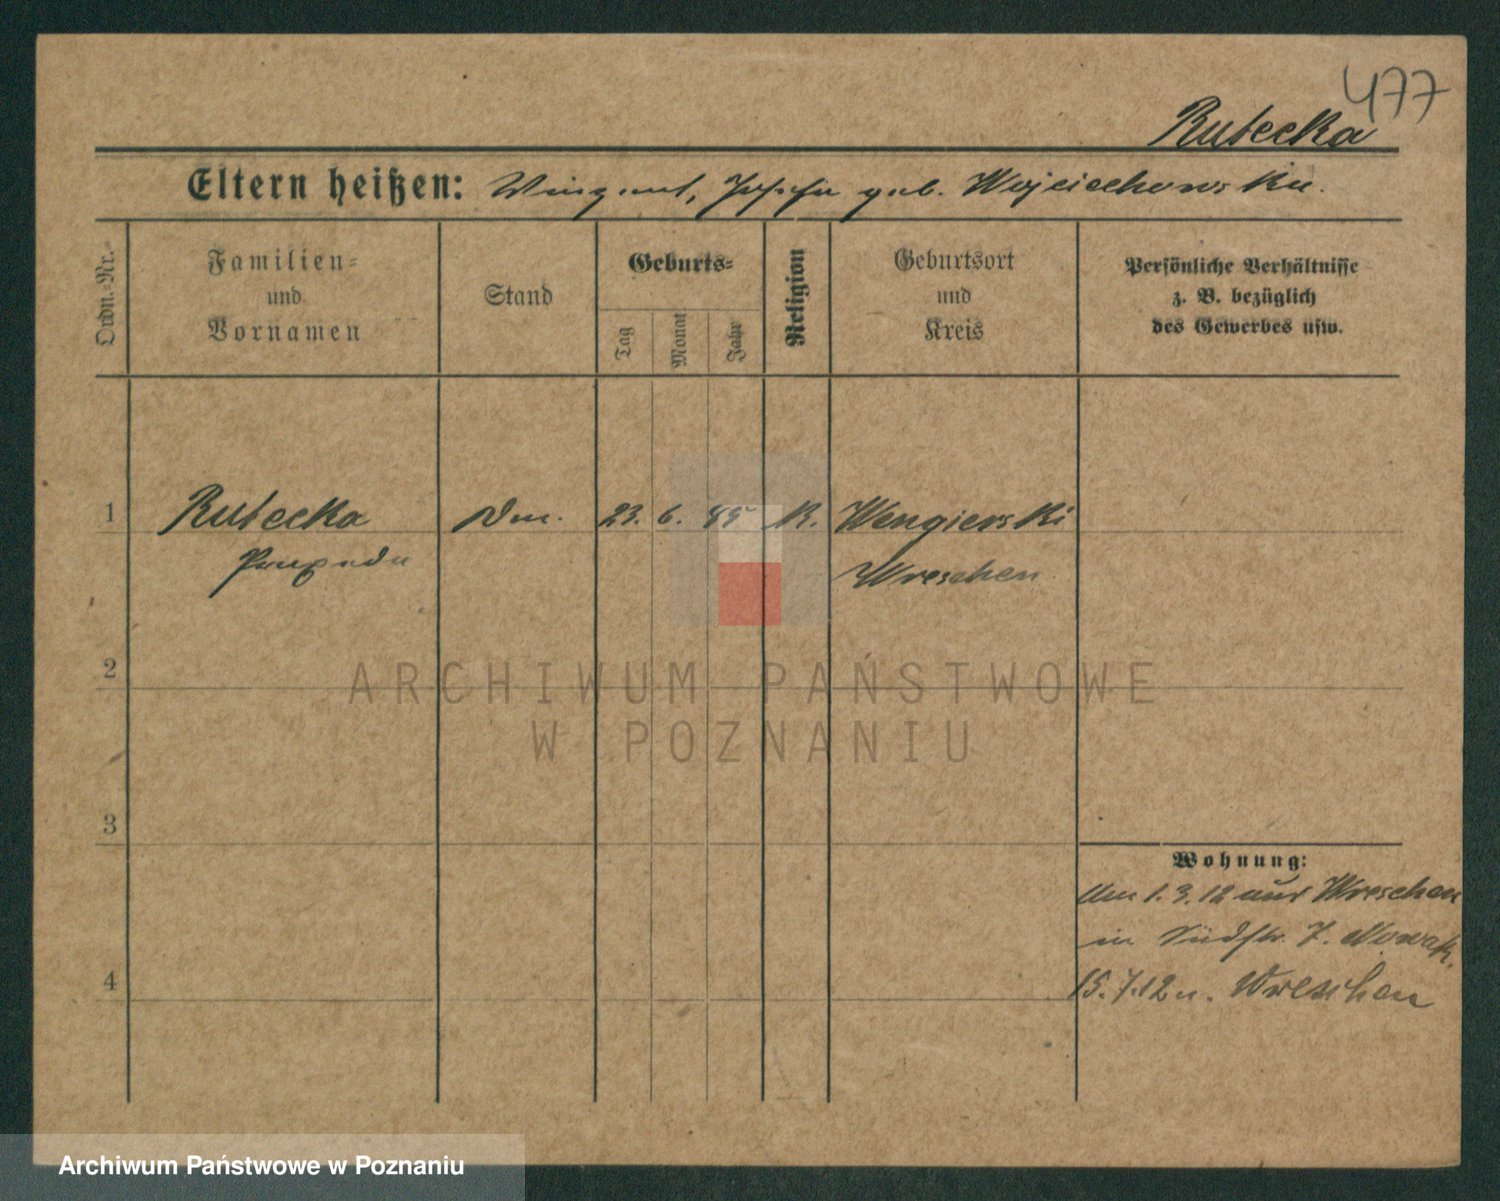 477
Rutecka
Eltern heißen: Vinzent, Josefa geb. Wojciechowska.
Ordn.-Nr.
Familien-
und
Vornamen
Stand
Geburts-
Tag
Monat
Jahr
Religion
Geburtsort
und
Kreis
Persönliche Verhältnisse
z. B. bezüglich
des Gewerbes usw.
1 Rutecka 23. 6. 95 K. Wengierski
Wreschen
2
3
4
Wohnung:
Am 1. 3. 12 aus Wreschen
in Südstr. 7. Nowak.
15. 7. 12 n. Wreschen
ARCHIWUM PAŃSTWOWE
W POZNANIU
Archiwum Państwowe w Poznaniu